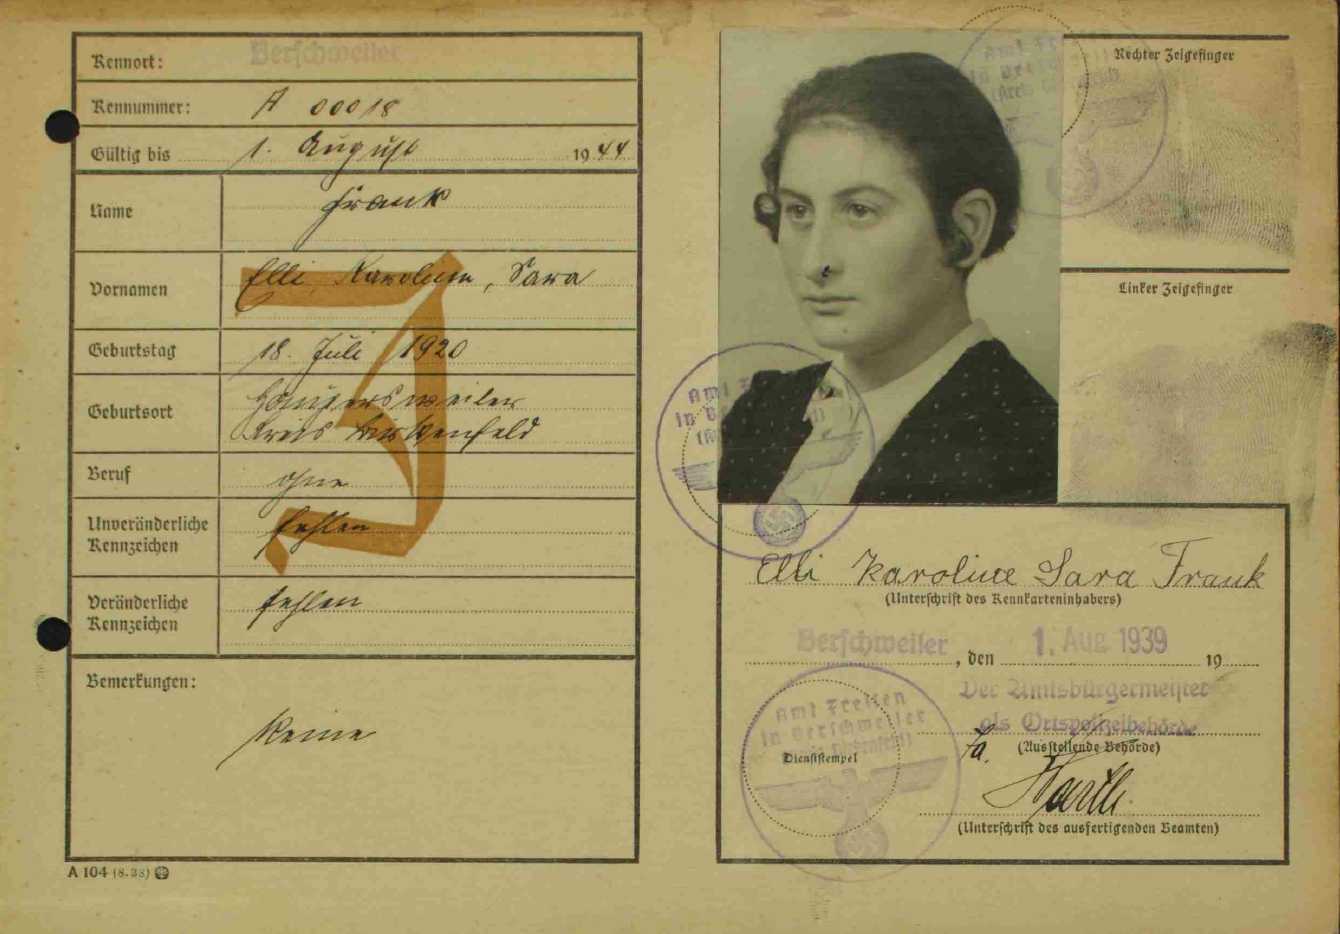 Kennort: Berschweiler
Kennummer: A 00018
Gültig bis 1. August 1944
Name Frank
Vornamen Elli, Karoline, Sara
J
Geburtstag 18. Juli 1920
Geburtsort
Kreis Birkenfeld
Beruf ohne
Unveränderliche Kennzeichen fehlen
Veränderliche Kennzeichen fehlen
Bemerkungen:
Keine
A 104 (8.38)
Rechter Zeigefinger
Linker Zeigefinger
Elli Karoline Sara Frank
(Unterschrift des Kennkarteninhabers)
Berschweiler, den 1. Aug 1939 19
Der Amtsbürgermeister
als Ortspolizeibehörde
(Ausstellende Behörde)
Amt
in Berschweiler
Dienststempel
(Unterschrift des ausfertigenden Beamten)